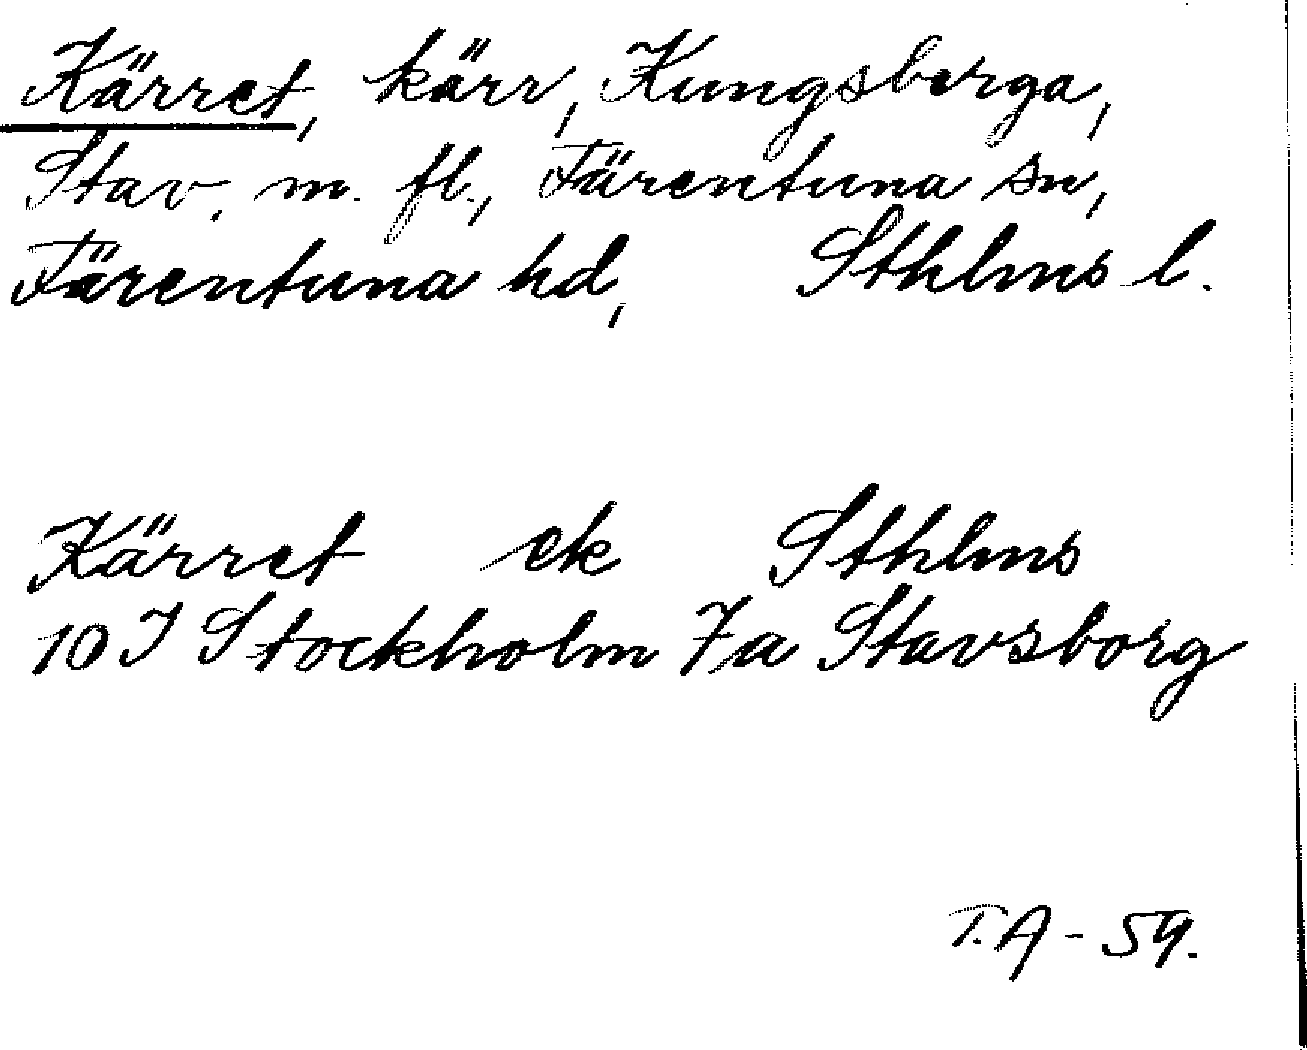 Kärret, kärr, Kungsberga,
Stav, m. fl., Färentuna sn,
Färentuna hd, Sthlms l.
Kärret ek Sthlms
10 I Stockholm 7a Stavsborg
T.A - 59.